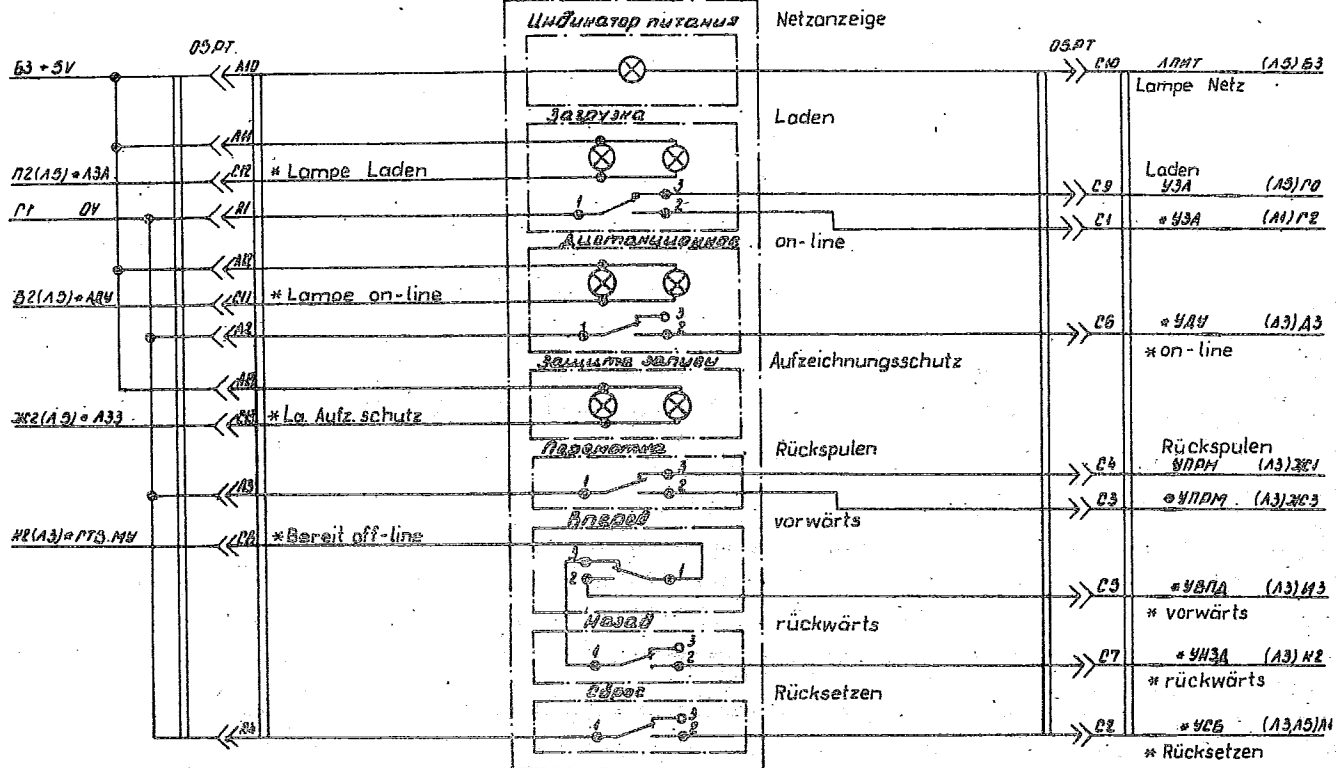 Индикатор питания Netzanzeige
05.РТ. 05.РТ
Б3 +5V А10 С10 ЛПИТ (А5) Б3
Lampe Netz
Загрузка Laden
А11
П2(А5) * ЛЗА С12 * Lampe Laden
Laden
3 С9 УЗА (А5) Г0
Г1 0V А1 1 2 С1 * УЗА (А1) Г2
Дистанционное on-line
А12
В2(А5) * ЛДУ С11 * Lampe on-line
3
А2 1 2 С6 * УДУ (А3) Д3
* on-line
Защита записи Aufzeichnungsschutz
Ж2(А5) * ЛЗЗ * La. Aufz. schutz
Перемотка Rückspulen
Rückspulen
3 С4 УПРМ (А3) Ж1
А3 1 2 С3 * УПРМ (А3) Ж3
Вперед vorwärts
* ГТВ.МУ С8 * Bereit off-line
3
2 1
С5 * УВПД (А3) И3
* vorwärts
Назад rückwärts
3
1 2 С7 * УНЗД (А3) К2
* rückwärts
Сброс Rücksetzen
3
А4 1 2 С2 * УСБ (А3,А5)
* Rücksetzen